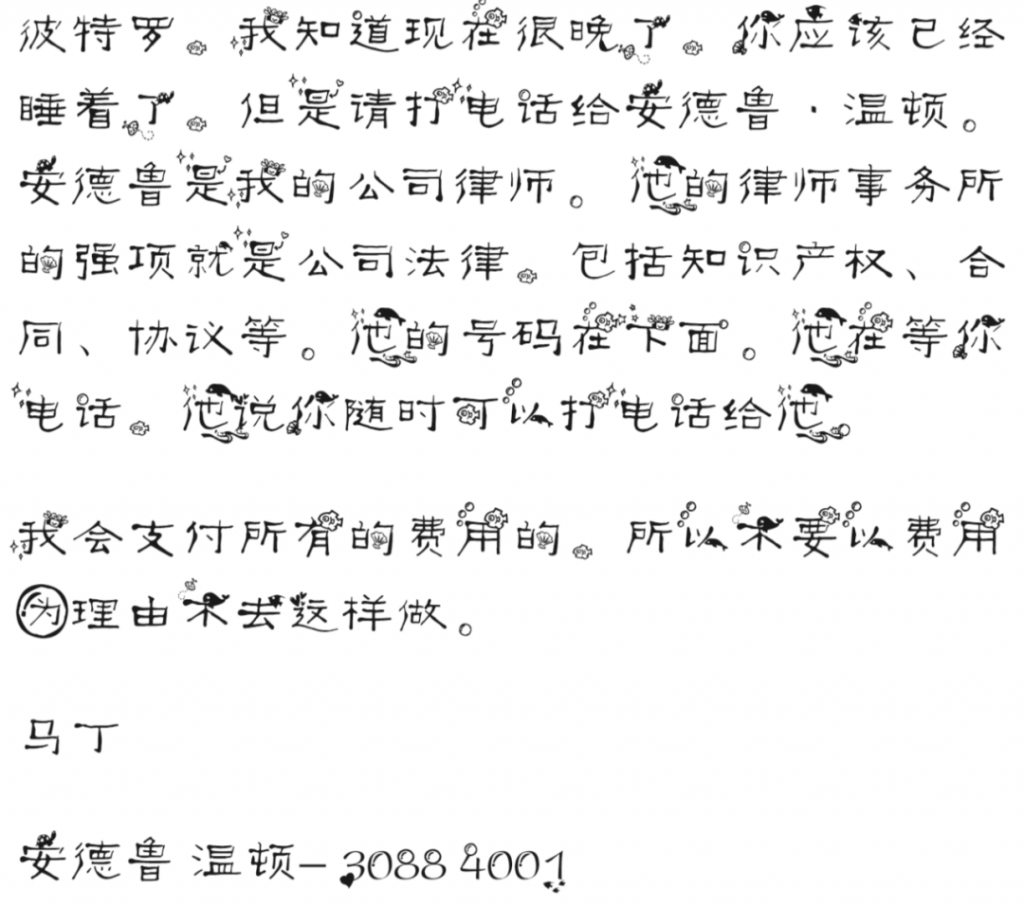 彼特罗。我知道现在很晚了。你应该已经
睡着了。但是请打电话给安德鲁·温顿。
安德鲁是我的公司律师。他的律师事务所
的强项就是公司法律。包括知识产权、合
同、协议等。他的号码在下面。他在等你
电话。他说你随时可以打电话给他。
我会支付所有的费用的。所以不要以费用
为理由不去这样做。
马丁
安德鲁 温顿– 3088 4001